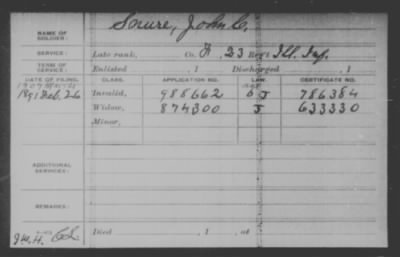 NAME OF SOLDIER: Snure, John C.
SERVICE: Late rank, Co. A, 23 Reg't Ill. Inf.
TERM OF SERVICE: Enlisted , 1 Discharged , 1
DATE OF FILING. CLASS. APPLICATION NO. LAW. CERTIFICATE NO.
1891 Feb. 26 Invalid, 988662 J 786384
Widow, 874300 J 633330
Minor,
ADDITIONAL SERVICES:
REMARKS:
Died , 1 , at